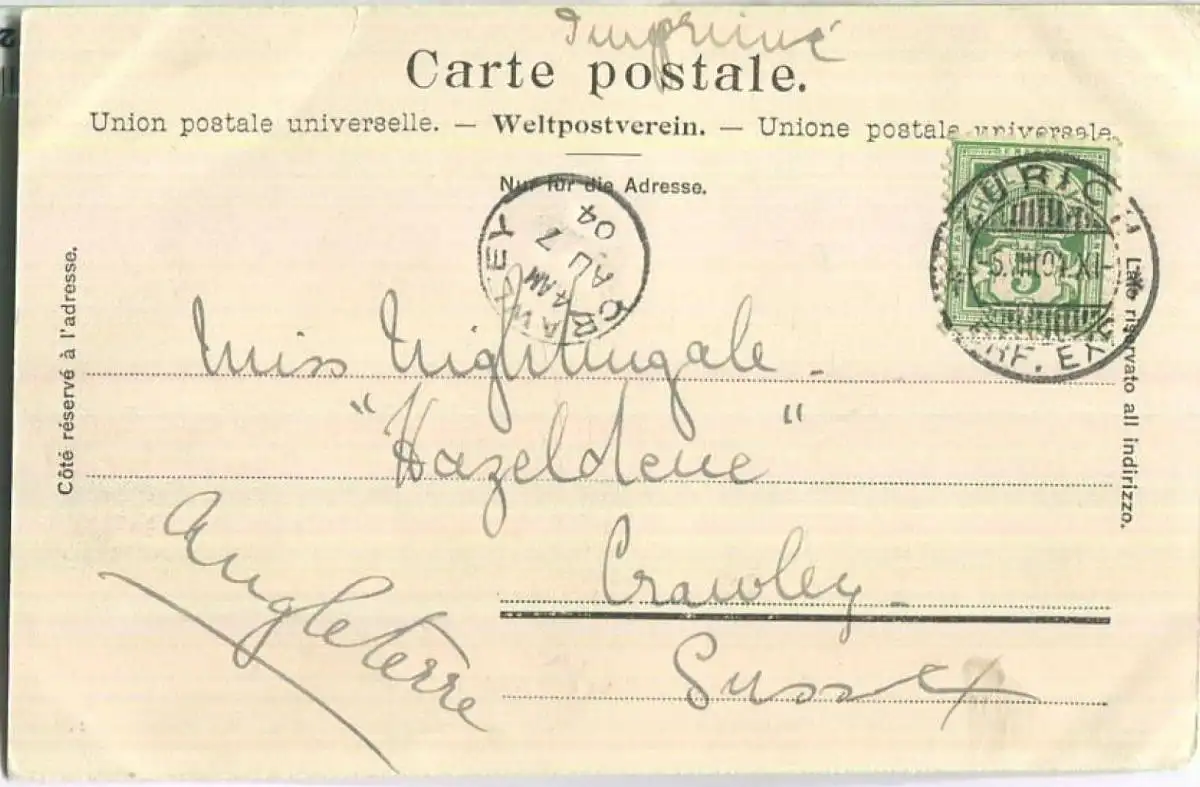 Imprimé
Carte postale.
Union postale universelle. — Weltpostverein. — Unione postale universale.
Nur für die Adresse.
Côté réservé à l'adresse.
Lato riservato all indirizzo.
CRAWLEY
4 AM
AU 7
04
ZÜRICH
-5.VIII.04.XI-
BRF. EXP.
5
Miss Nightingale.
"Hazeldene"
Crawley.
Sussex
Angleterre